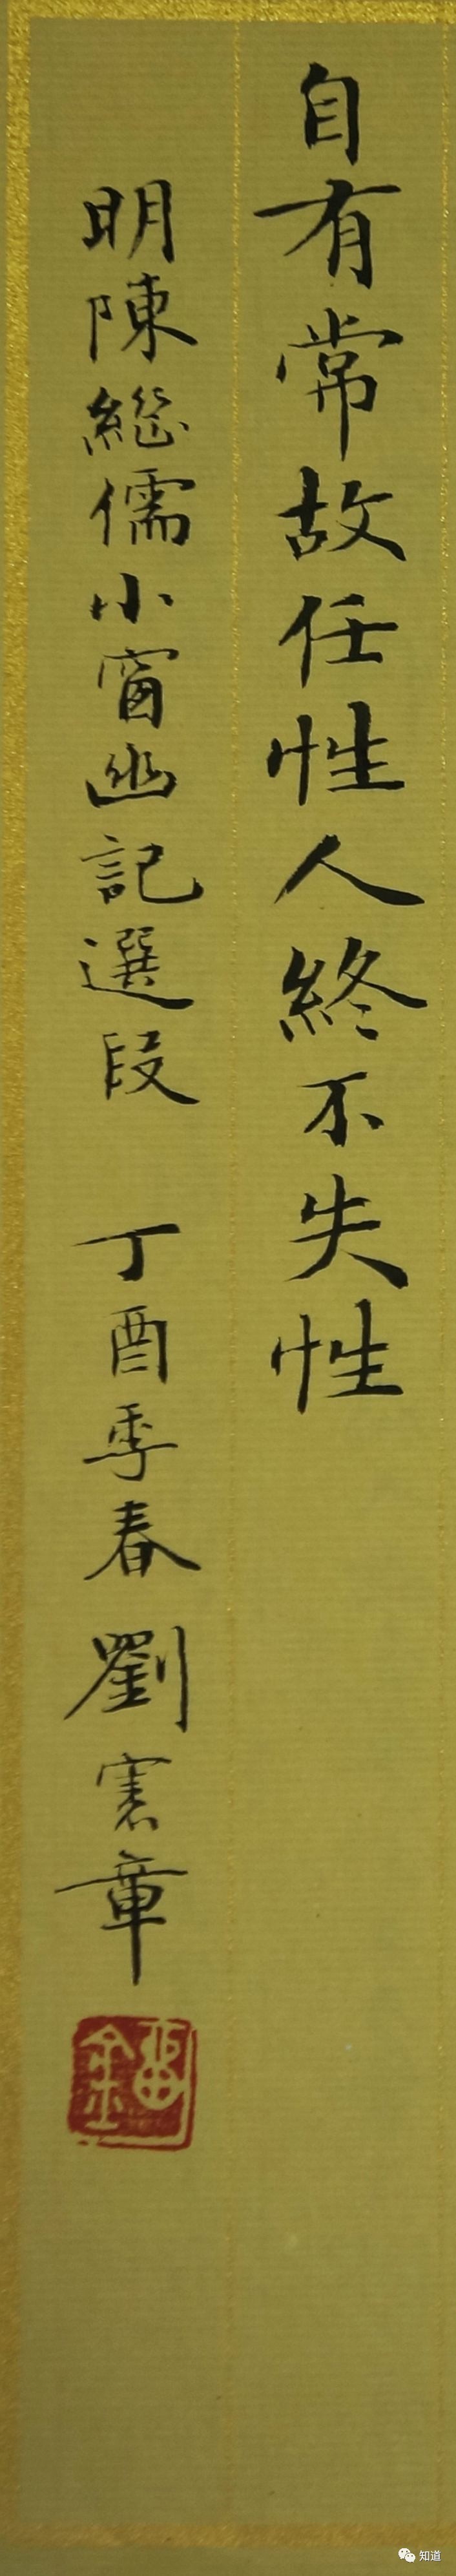 自有常故任性人終不失性
明陳繼儒小窗幽記選段 丁酉季春 劉憲章
知道